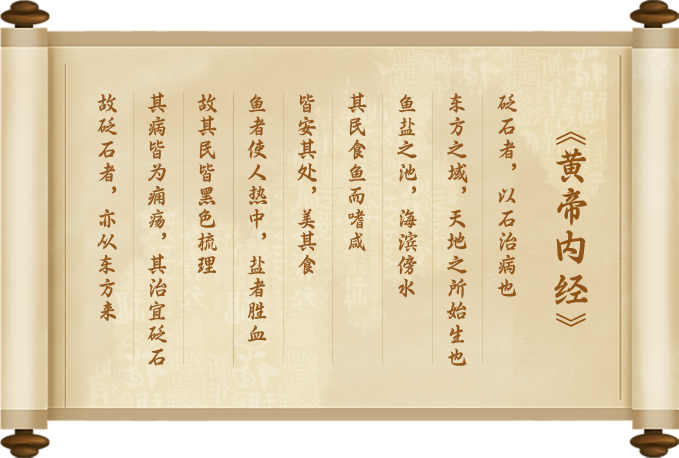 《黄帝内经》
砭石者，以石治病也
东方之域，天地之所始生也
鱼盐之池，海滨傍水
其民食鱼而嗜咸
皆安其处，美其食
鱼者使人热中，盐者胜血
故其民皆黑色梳理
其病皆为痈疡，其治宜砭石
故砭石者，亦从东方来